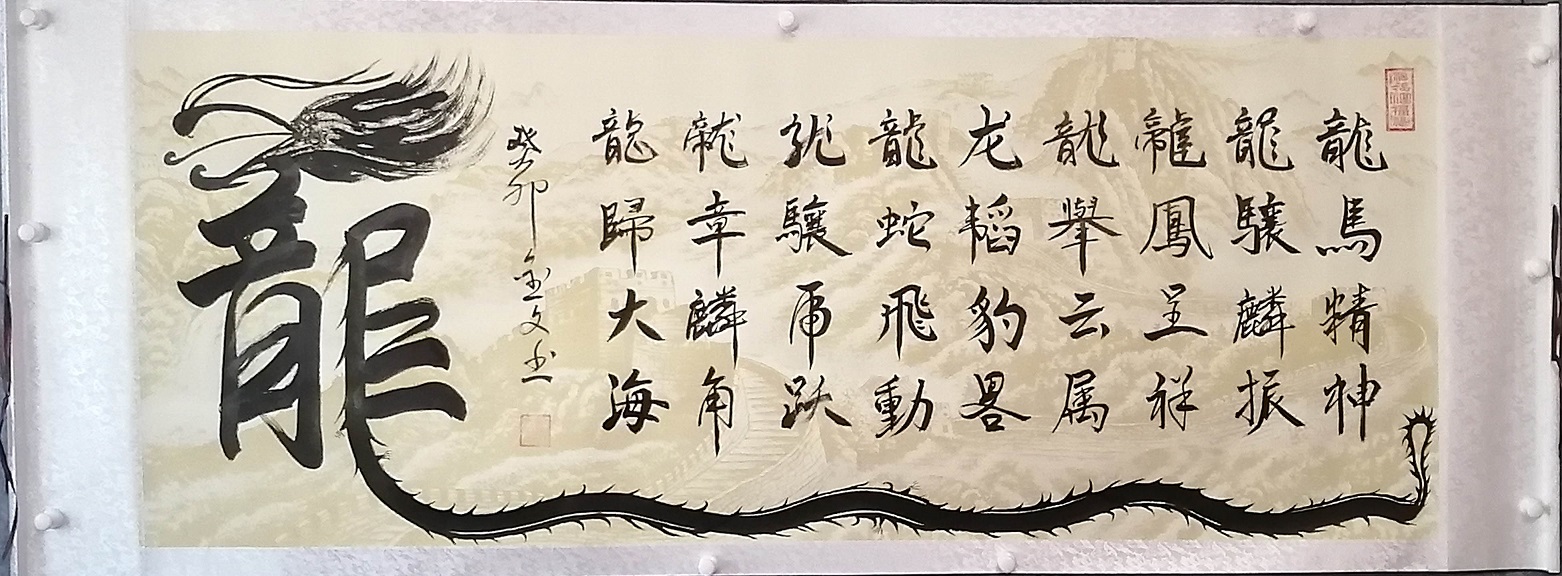 龍馬精神
龍驤麟振
龍鳳呈祥
龍舉云属
龙韬豹畧
龍蛇飛動
龍驤虎跃
龍章麟角
龍歸大海
癸卯金文书
龍